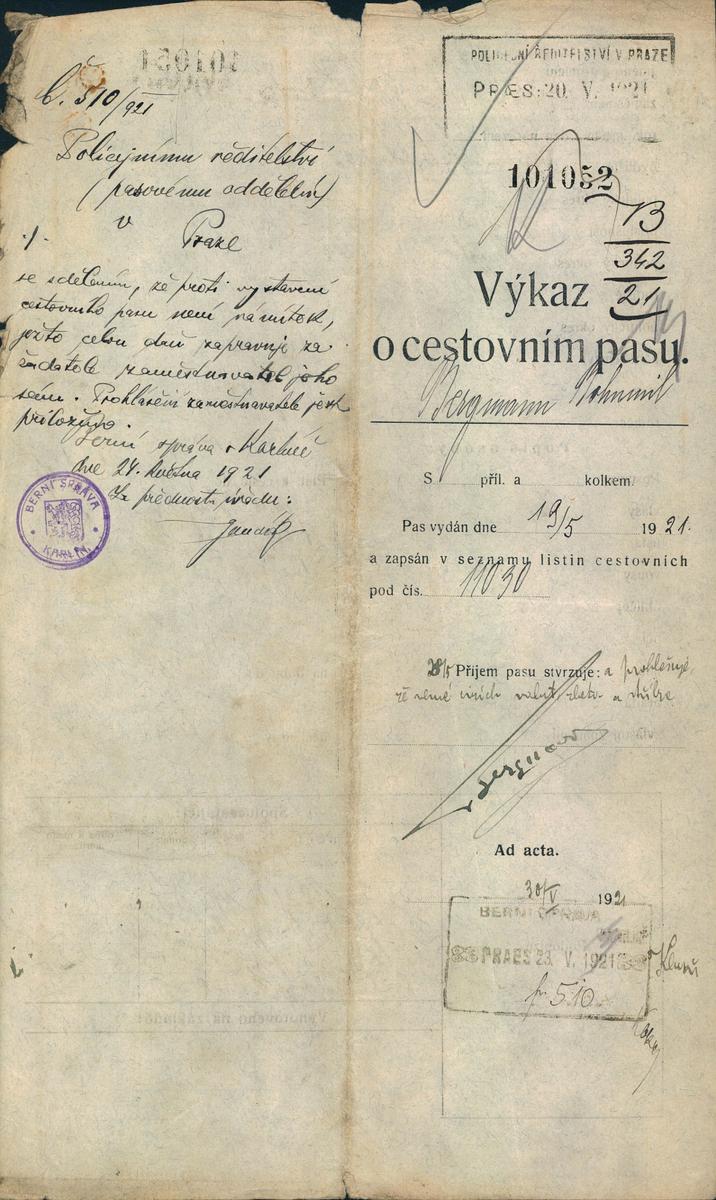 č. 510/921
Policejnímu ředitelství
(pasovému oddělení)
v
./. Praze
se sdělením, že proti vystavení
cestovního pasu není námitek,
ježto celou daň zapravuje za
žadatele zaměstnavatel jeho
sám. Prohlášení zaměstnavatele jest
přiloženo.
Berní správa v Karlíně
dne 24. května 1921
Za přednostu úřadu:
BERNÍ SPRÁVA
KARLÍN.
POLICEJNÍ ŘEDITELSTVÍ V PRAZE
PRES: 20. V. 1921
101052
B
342
21
Výkaz
o cestovním pasu.
Bergmann Bohumil
S příl. a kolkem.
Pas vydán dne 19/5 1921.
a zapsán v seznamu listin cestovních
pod čís. 11030
28/5 Příjem pasu stvrzuje: a prohlašuje,
že nemá cizích valut, zlata a stříbra
Bergmann
Ad acta.
30/V 1921
BERNÍ SPRÁVA
PRAES 23. V. 1921
510